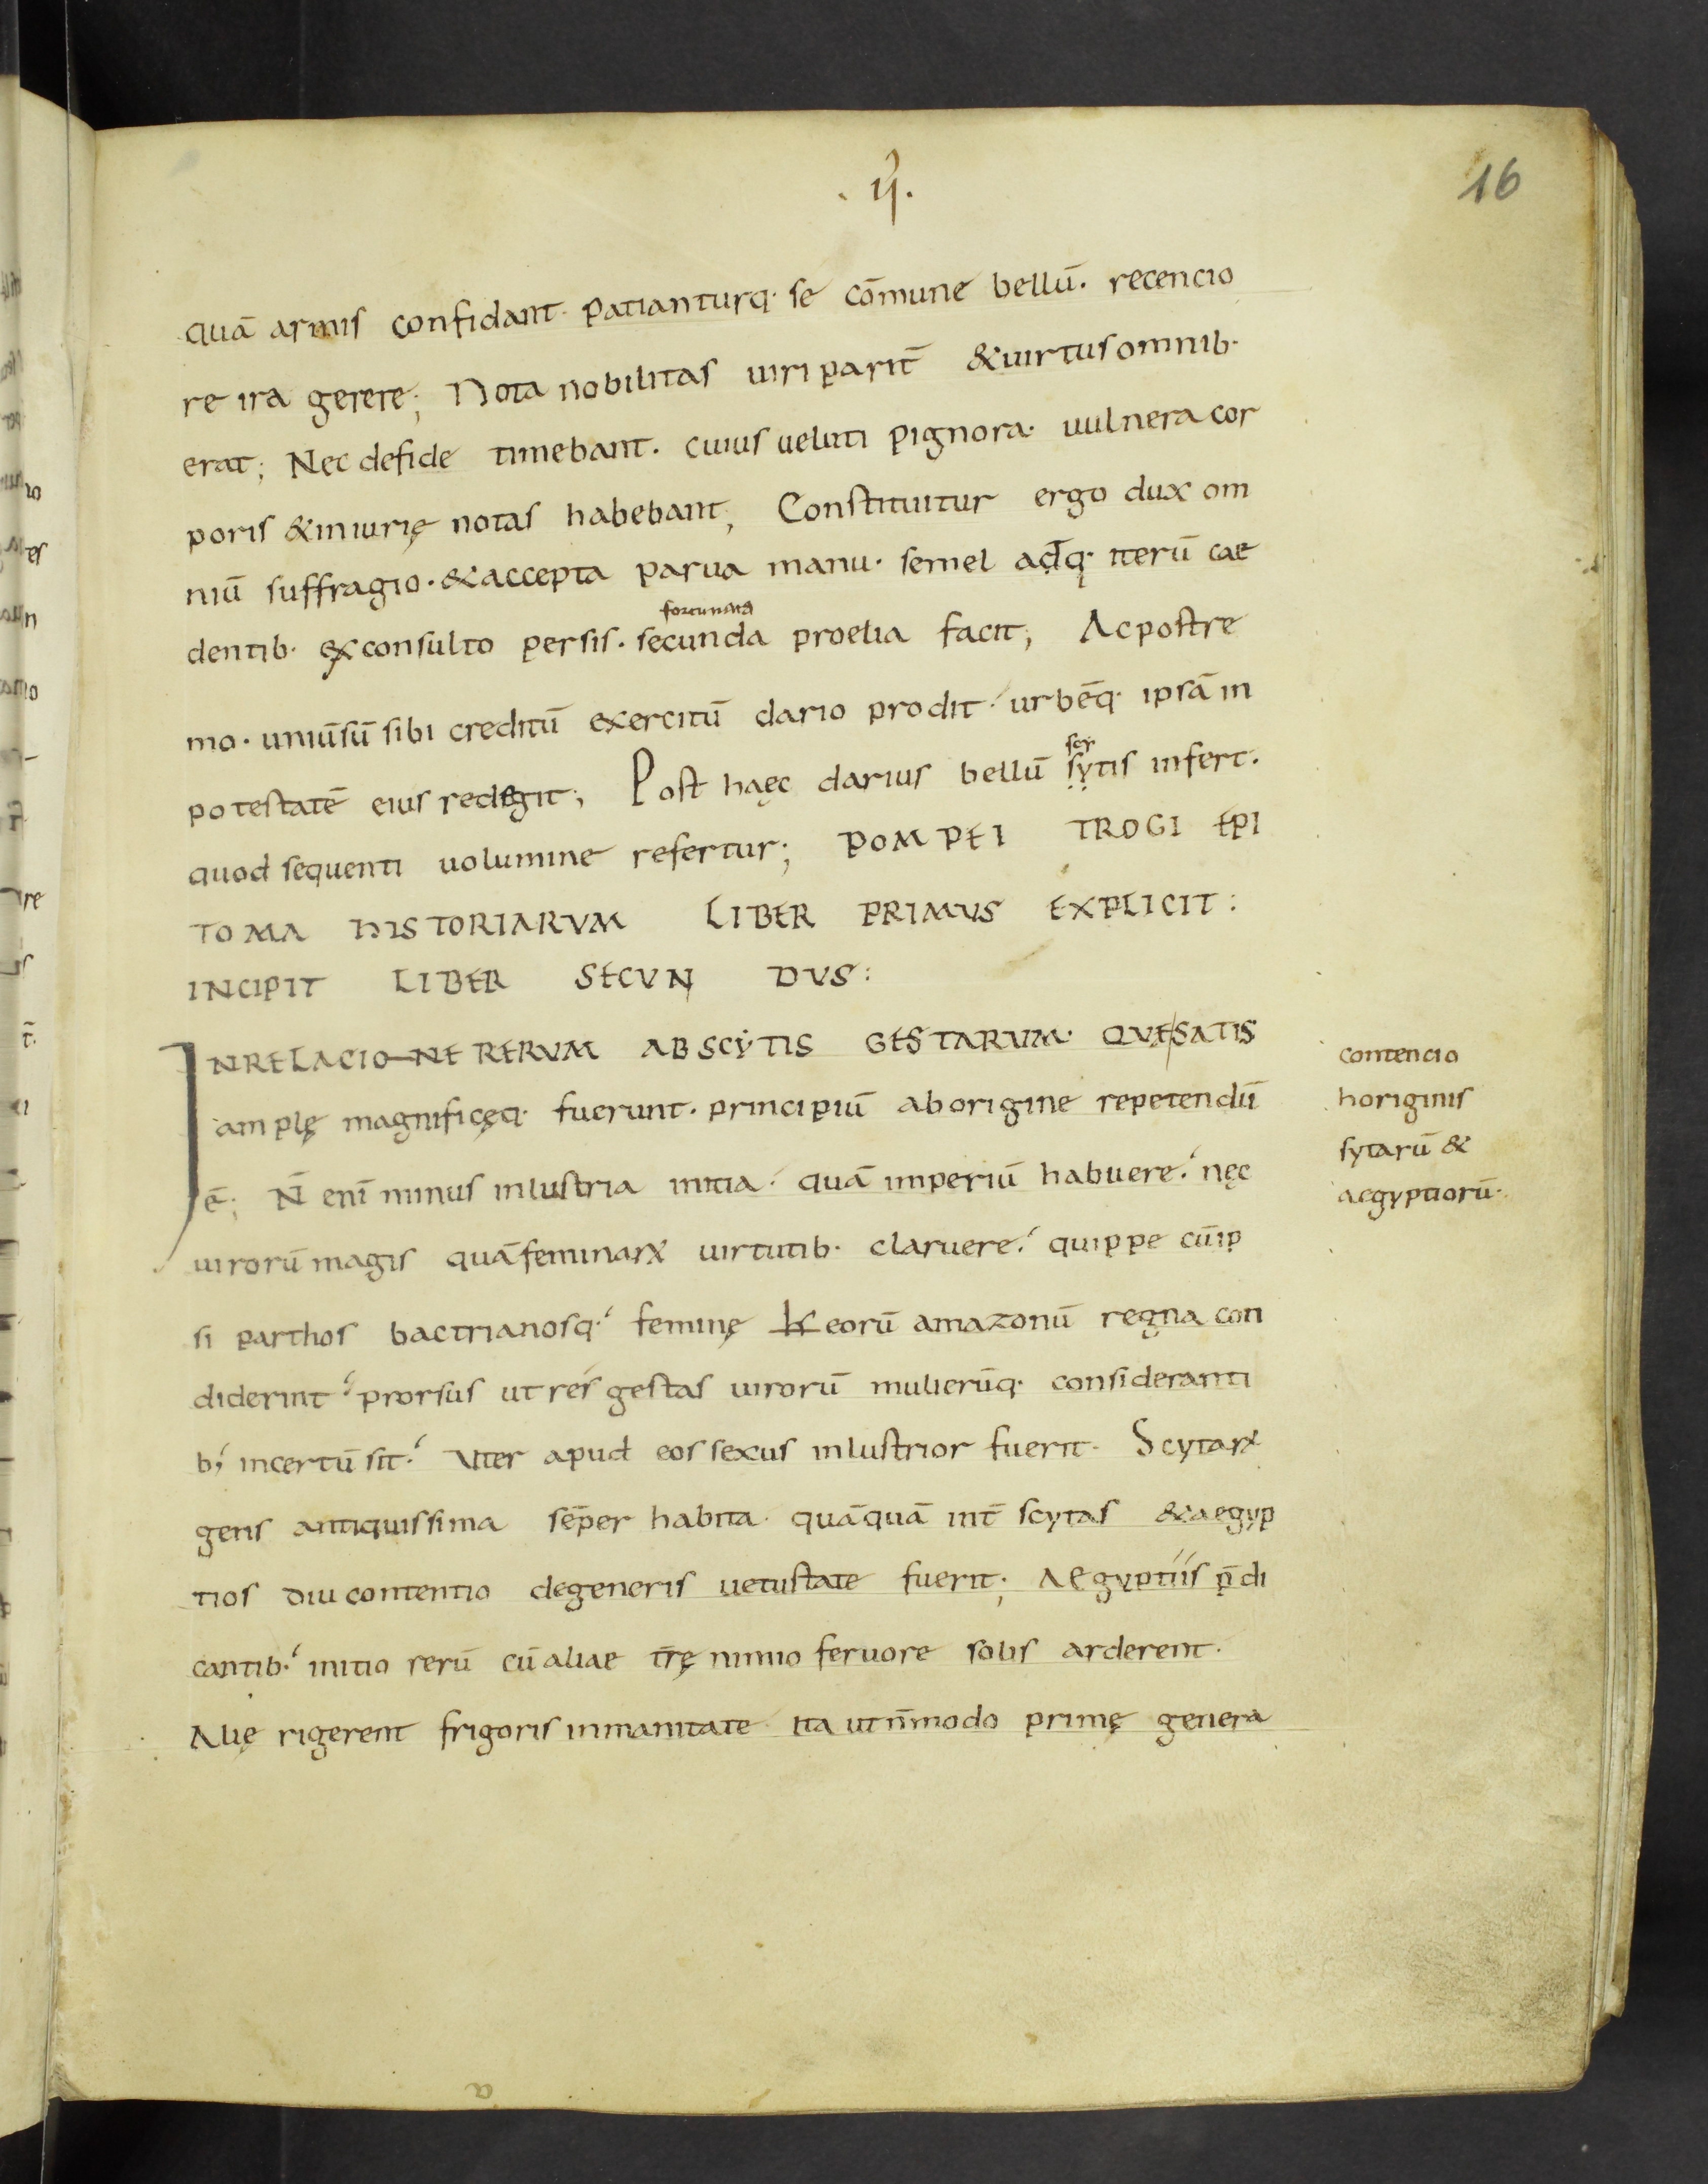 . ij .
16
quā armis confidant · patianturq· se cōmune bellū · recencio
re ira gerere; Nota nobilitas uiri parit̄ & uirtus omnib·
erat; Nec de fide timebant · cuius ueluti pignora · uulnera cor
poris & iniurię notas habebant; Constituitur ergo dux om
niū suffragio · & accepta parua manu · semel adq· iterū cae
fortunata
dentib· ex consulto persis · secunda proelia facit; Ac postre
mo · uniūsū sibi creditū exercitū dario prodit · urbēq· ipsā in
scy
potestatē eius redegit; Post haęc darius bellū sytis infert ·
quod sequenti uolumine refertur; POMPEI TROGI EPI
TOMA HISTORIARVM LIBER PRIMVS EXPLICIT :
INCIPIT LIBER SECVNDVS :
IN RELACIONE RERVM AB SCYTIS GESTARVM · QVE SATIS
amplę magnificęq· fuerunt · principiū ab origine repetendū
ē; N̄ enī minus inlustria initia · quā imperiū habuere · nęc
uirorū magis quā feminaꝝ uirtutib· claruere · quippe cū ip
si parthos bactrianosq· feminę eorū amazonū regna con
diderint · prorsus ut res gestas uirorū mulierūq· consideranti
b; incertū sit · Vter apud eos sexus inlustrior fuerit · Scytaꝝ
gens antiquissima sēper habita · quāquā int̄ scytas & aegyp
tios diu contentio de generis uetustate fuerit; Aegyptiis p̄di
cantib· initio rerū cū aliae tr̄ę nimio feruore solis arderent ·
Alię rigerent frigoris inmanitate ita ut n̄ modo primę genera
contencio
horiginis
sytarū &
aegyptiorū ·